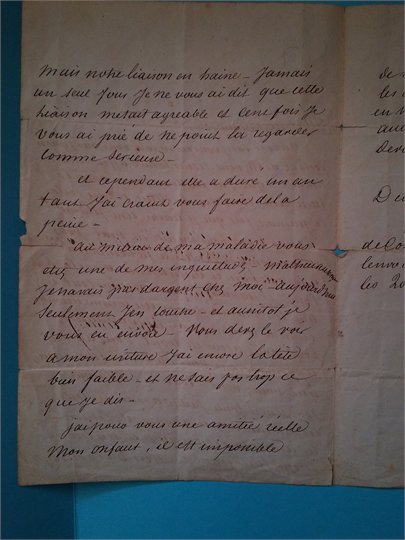 mais notre liaison en haine - Jamais
un seul Jour Je ne vous ai dit que cette
liaison metait agreable et cent fois Je
vous ai prié de ne point la regarder
comme serieuse -
et cependant elle a duré un an
tant J'ai craint vous faire de la
peine -
au milieu de ma maladie vous
etiez une de mes inquietudes - malheureusement
Je navais pas dargent chez moi - aujourd'hui
seulement J'en touche - et aussitot je
vous en envoie - Vous devez le voir
a mon ecriture J'ai encore la tête
bien faible - et ne sais pas trop ce
que Je dis -
jai pour vous une amitié réelle
Mon enfant, il est impossible
de
les
en
au
de Co
les 20